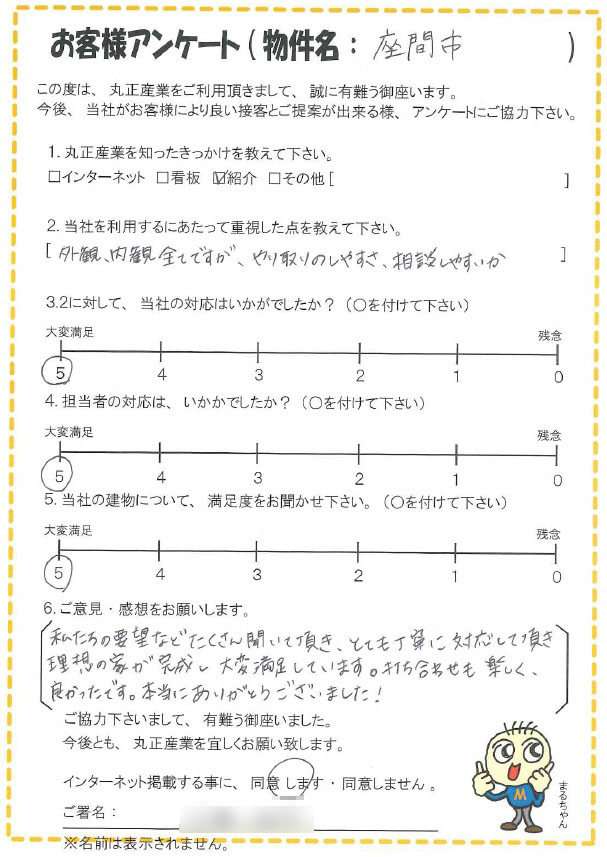 お客様アンケート(物件名：座間市)
この度は、丸正産業をご利用頂きまして、誠に有難う御座います。
今後、当社がお客様により良い接客とご提案が出来る様、アンケートにご協力下さい。
1. 丸正産業を知ったきっかけを教えて下さい。
□インターネット □看板 ☑紹介 □その他[ ]
2. 当社を利用するにあたって重視した点を教えて下さい。
[外観、内観全てですが、やり取りのしやすさ、相談しやすいか]
3.2に対して、当社の対応はいかがでしたか？（○を付けて下さい）
大変満足 残念
5 4 3 2 1 0
4. 担当者の対応は、いかかでしたか？（○を付けて下さい）
大変満足 残念
5 4 3 2 1 0
5. 当社の建物について、満足度をお聞かせ下さい。（○を付けて下さい）
大変満足 残念
5 4 3 2 1 0
6. ご意見・感想をお願いします。
私たちの要望などたくさん聞いて頂き、とても丁寧に対応して頂き
理想の家が完成し大変満足しています。打ち合わせも楽しく、
良かったです。本当にありがとうございました！
ご協力下さいまして、有難う御座いました。
今後とも、丸正産業を宜しくお願い致します。
インターネット掲載する事に、同意します・同意しません。
ご署名：
※名前は表示されません。
M
まるちゃん